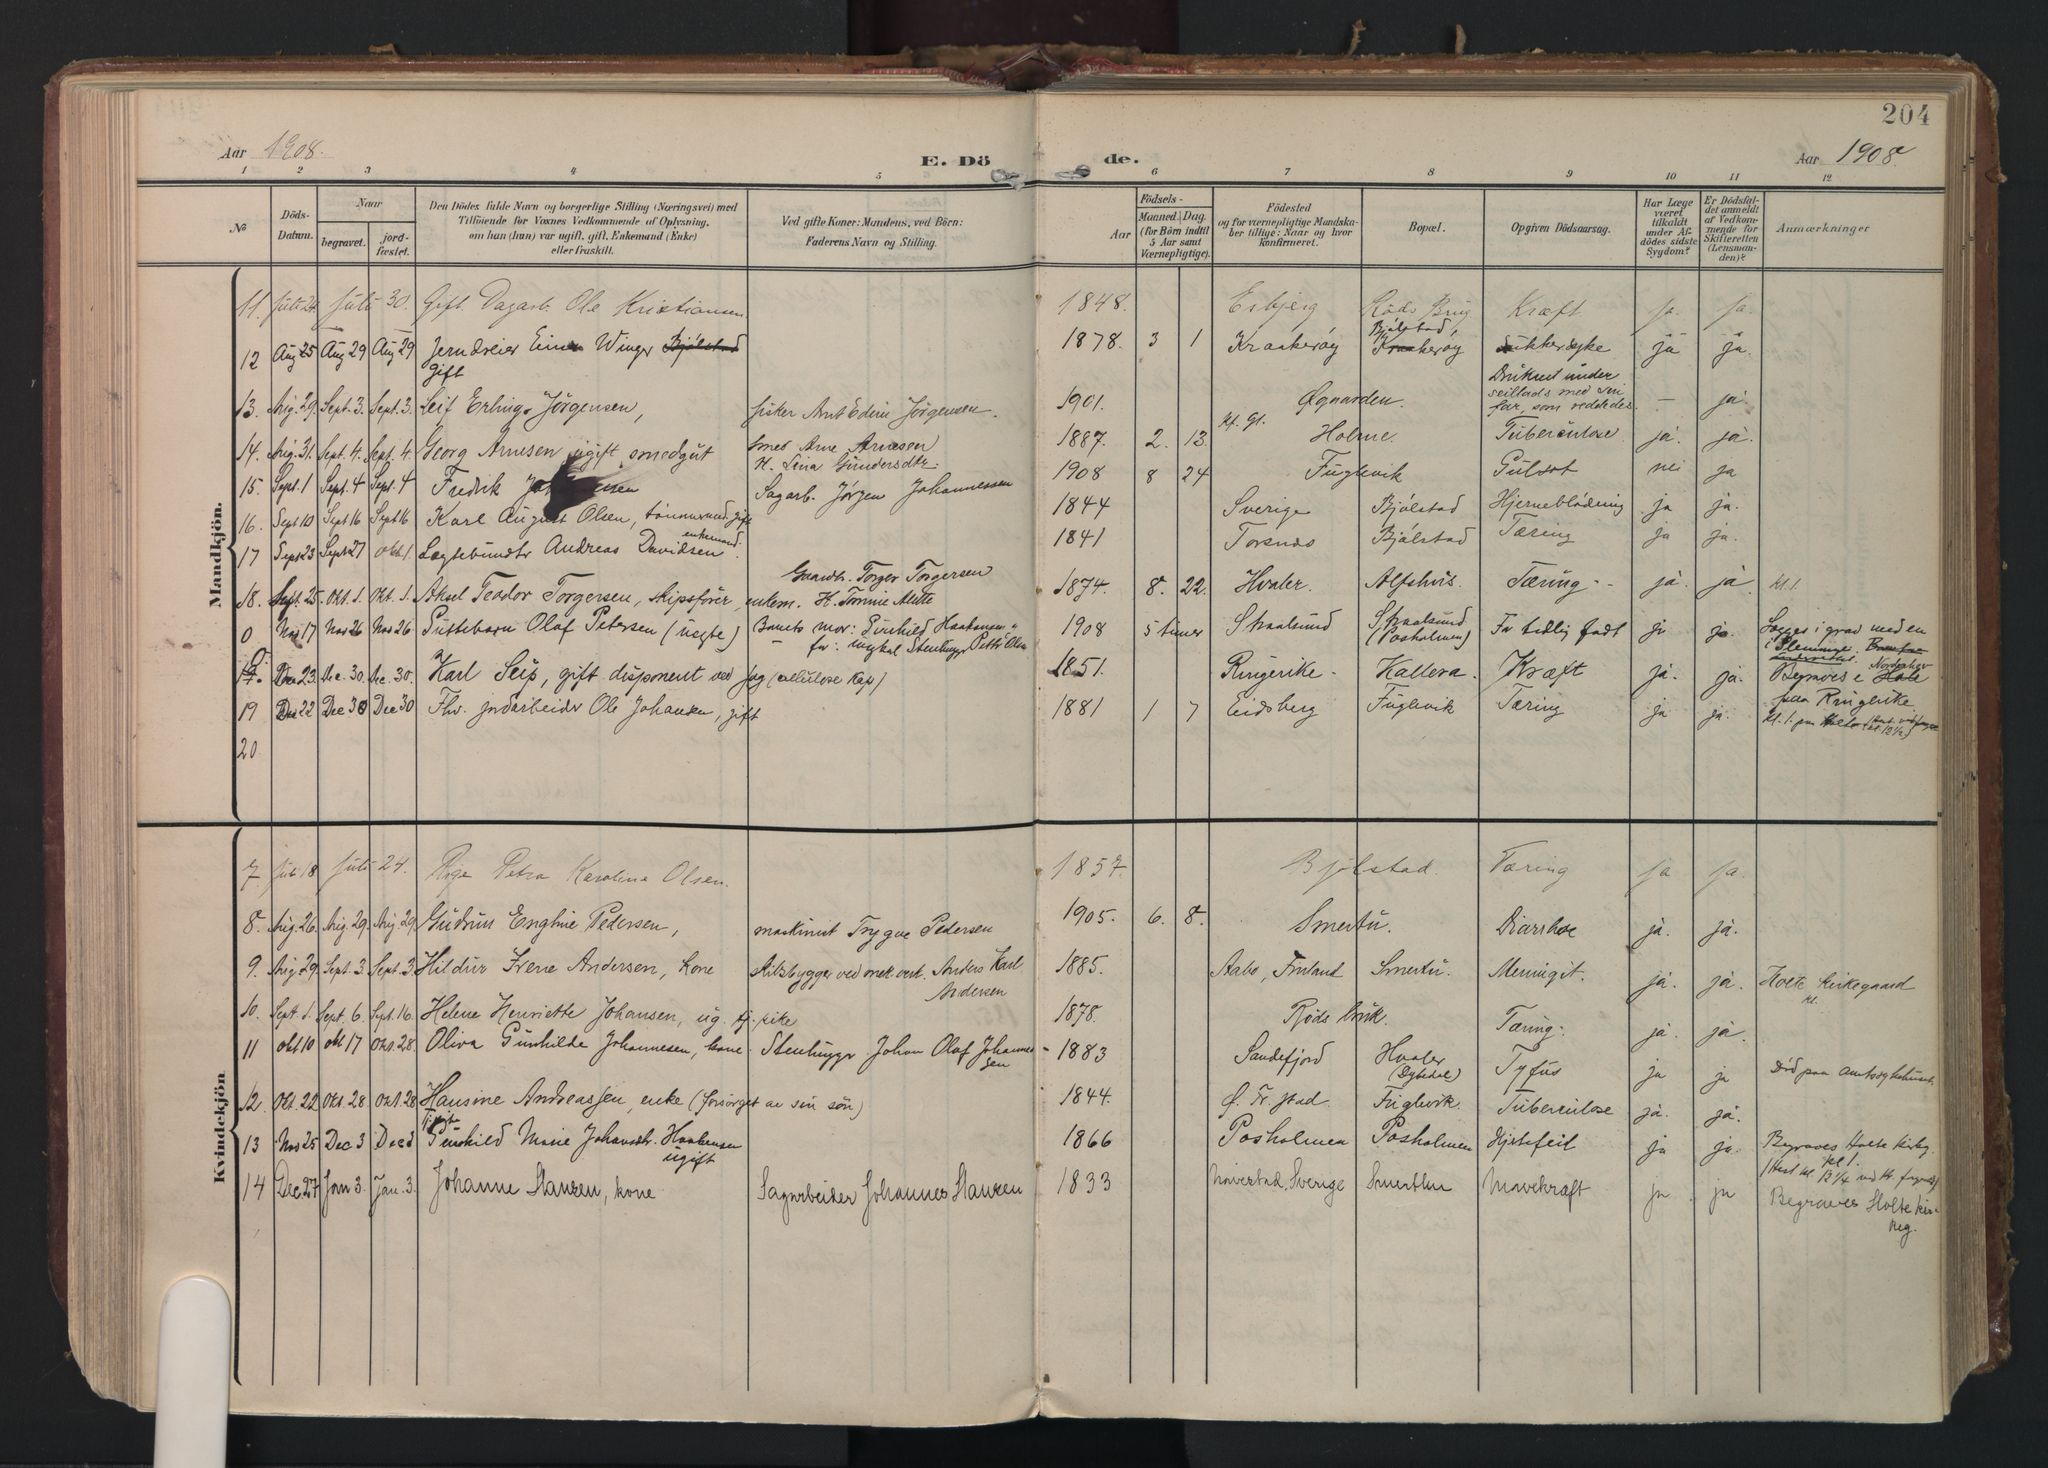 204
Aar 1908.
E. Dö
de.
Aar 1908
1 2 3 4 5 6 7 8 9 10 11 12
№
Döds-
Datum.
Naar
begravet.
jord-
fæstet.
Den Dödes fulde Navn og borgerlige Stilling (Næringsvei) med
Tilföiende for Voxnes Vedkommende af Oplysning,
om han (hun) var ugift, gift, Enkemand (Enke)
eller fraskilt.
Ved gifte Koner: Mandens, ved Börn:
Faderens Navn og Stilling.
Födsels-
Aar
Maaned. Dag.
(for Börn indtil
5 Aar samt
Værnepligtige).
Födested
og for værnepligtige Mandska-
ber tillige: Naar og hvor
konfirmeret.
Bopæl.
Opgiven Dödsaarsag.
Har Læge
været
tilkaldt
under Af-
dödes sidste
Sygdom?
Er Dödsfal-
det anmeldt
af Vedkom-
mende for
Skifteretten
(Lensman-
den)?
Anmærkninger
Mandkjön.
11. Juli 24 Juli 30. Gift. Dagarb. Ole Kristiansen 1848. Esbjerg Röds Brug Kræft ja. ja.
12 Aug 25 Aug 29 Aug 29 Jerndreier Einar Winger Bjölstad 1878. 3 1 Kraakeröy Bjölstad, Kraakeröy Sukkersyke ja ja.
gift
13. Aug. 29. Sept. 3. Sept. 3. Leif Erling Jörgensen, fisker Ant Edin Jörgensen. 1901. Øgaarden. Druknet under
seillads med sin
far, som reddedes. — ja.
14. Aug. 31. Sept. 4. Sept. 4 Georg Arnesen, ugift, smedgut Smed Arne Arnesen
H. Lina Gundersdtr. 1887. 2. 13. Holme. Tuberculose ja. ja.
15. Sept. 1 Sept. 4 Sept. 4 Fredrik Sagarb. Jörgen Johannessen 1908 8 24 Fuglevik Gulsot nei ja
16. Sept 10 Sept 16 Sept 16 Karl August Olsen, gift 1844 Sverige Bjölstad Hjerneblödning ja ja.
17 Sept 23 Sept 27 Okt 1. Andreas Davidsen enkemand. 1841 Torsnæs Bjölstad Tæring ja ja.
18. Sept. 25. Okt. 1. Okt. 1 Aksel Teodor Torgersen, skipsförer, enkem. Gaardbr. Torger Torgersen
H. Tomine Alette 1874. 8. 22. Hvaler. Alfshus. Tæring. ja. ja. kl. 1.
0 Nov 17 Nov 26 Nov 26 Guttebarn Olaf Petersen (uegte) Barnets mor: Gunhild Haakensen
far: ungkar Stenhugger Petter Olsen 1908 5 timer Straalsund Straalsund
(Posholmen) For tidlig födt ja ja. Lægges i grav med en
Dec 23. Dec. 30. Dec. 30. Karl Seip, gift disponent ved fog (cellulose Kap) 1851. Ringerike. Kallera. Kræft ja. ja. Begraves i Norderhov
paa Ringerike
19 Dec 22 Dec 30 Dec 30 Fhv. jordarbeider Ole Johansen, gift 1881 1 7 Eidsberg Fuglevik Tæring ja ja. kl. 1. paa Holte
20
Kvindekjön
7. Juli 18 Juli 24. Pige Petra Karoline Olsen. 1857. Bjölstad. Tæring ja ja.
8. Aug. 26. Aug. 29. Aug. 29. Gudrun Enghine Pedersen, maskinist Trygve Pedersen 1905. 6. 8. Smertu. Diarrhoe ja. ja.
9. Aug 29. Sept. 3. Sept. 3. Hildur Irene Andersen, kone Stilsbygger ved mek. verk. Anders Karl
Andersen 1885. Aabo, Finland Smertu. Meningit. ja. ja. Holte kirkegaard
kl.
10. Sept. 1. Sept. 6. Sept. 16. Helene Henriette Johansen, ug. tj. pike 1878. Röds bruk. Tæring. ja. ja.
11 Okt 10 Okt 17 Okt. 28. Oliva Gunhilde Johannesen, kone. Stenhugger Johan Olaf Johannes-
sen 1883 Sandefjord Hvaler
(Dybedal) Tyfus ja ja Död paa amtssykehuset.
12. Okt. 22 Okt. 28 Okt. 28 Hansine Andreassen, enke (forsörget av sin sön) 1844. Ø. Fr. stad. Fuglevik. Tuberculose ja. ja.
13 Nov 25 Dec 3 Dec 3 Gunhild Marie Johansdtr. Haakensen
ugift 1866 Posholmen Posholmen Hjertefeil ja ja. Begraves Holte kirkeg.
kl 1.
14 Dec 27 Jan 3. Jan. 3. Johanne Hansen, kone Sagarbeider Johannes Hansen 1833 Naverstad, Sverige Smertu Mavekræft ja ja Begraves Holte kir-
keg.